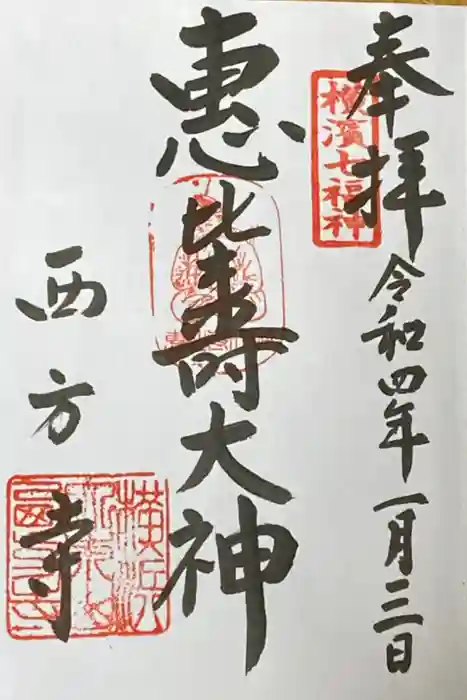 奉拝
令和四年一月三日
横濱七福神
惠比寿大神
西方寺